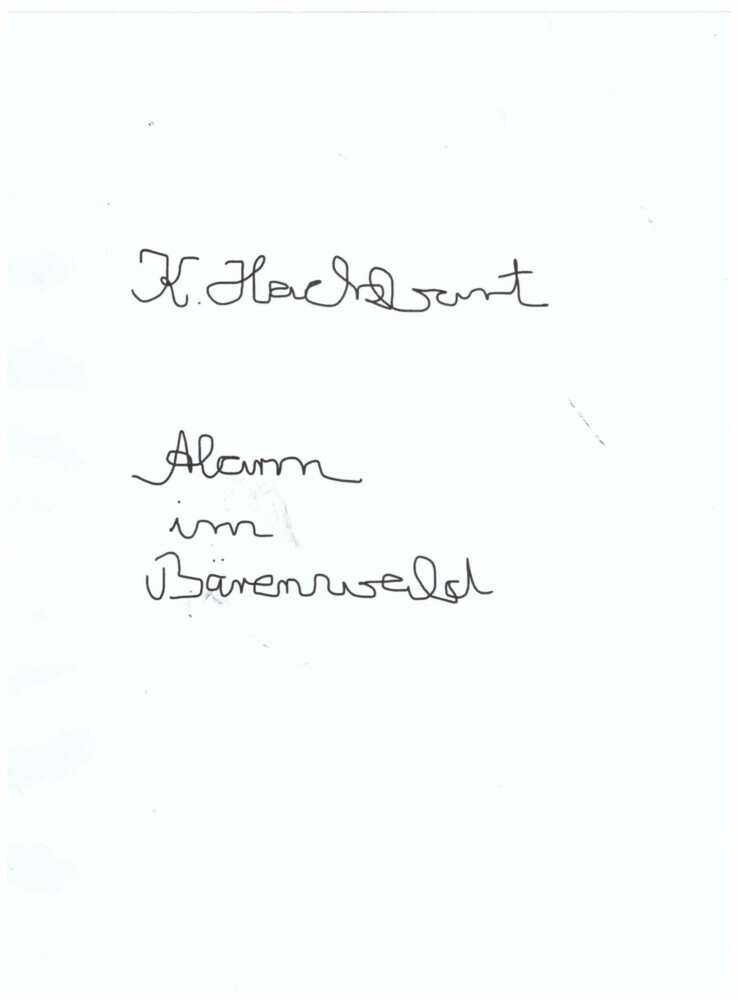 K. Hackbart
Alarm
im
Bärenwald